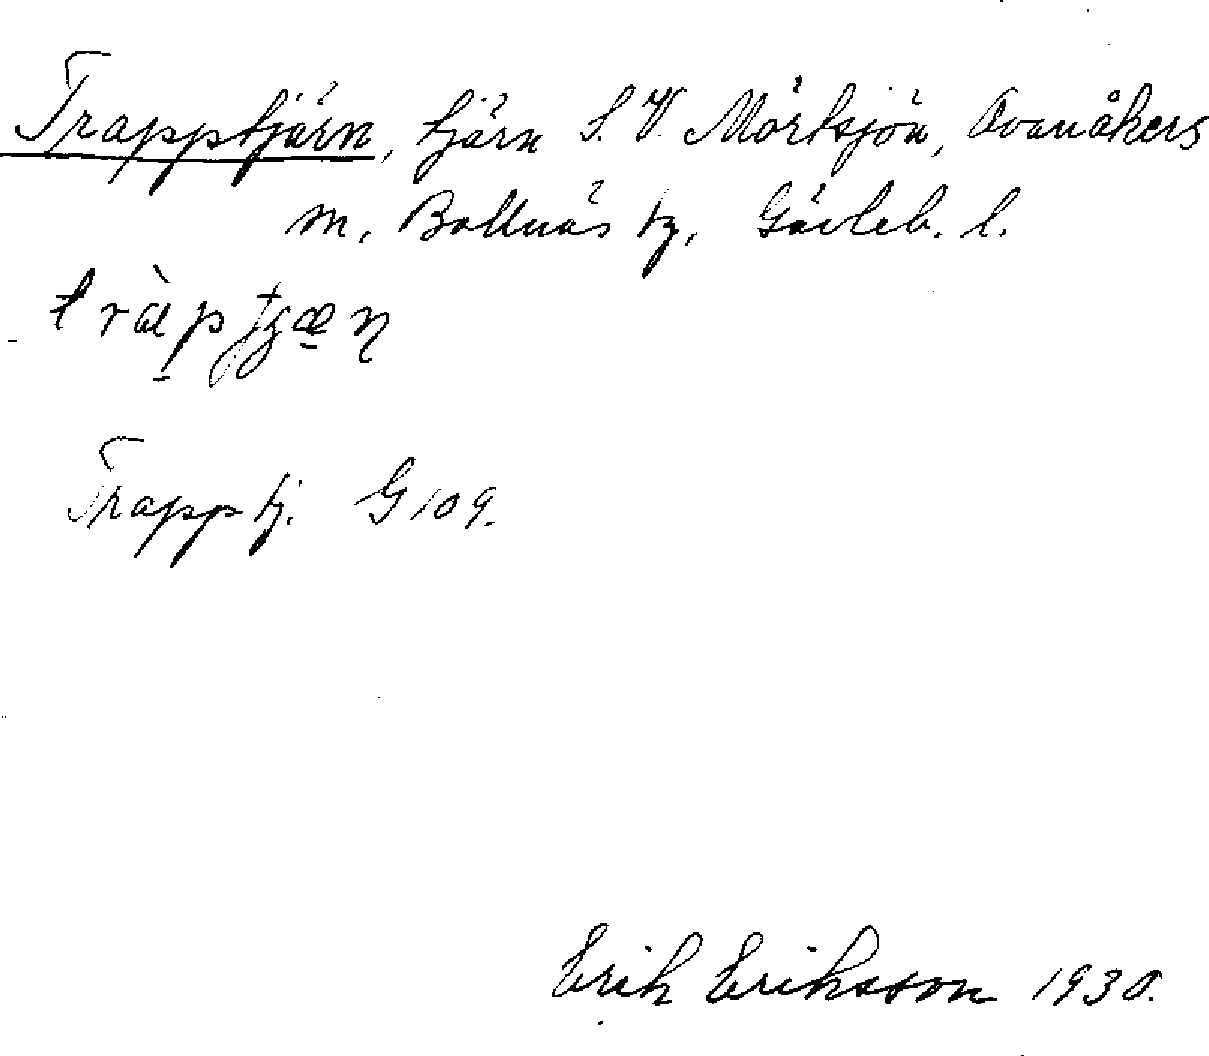 Trapptjärn, tjärn S.V. Mörtsjön, Ovanåkers
m, Bollnäs tg, Gävleb. l.
Trapptj. G 109.
Erik Eriksson 1930.